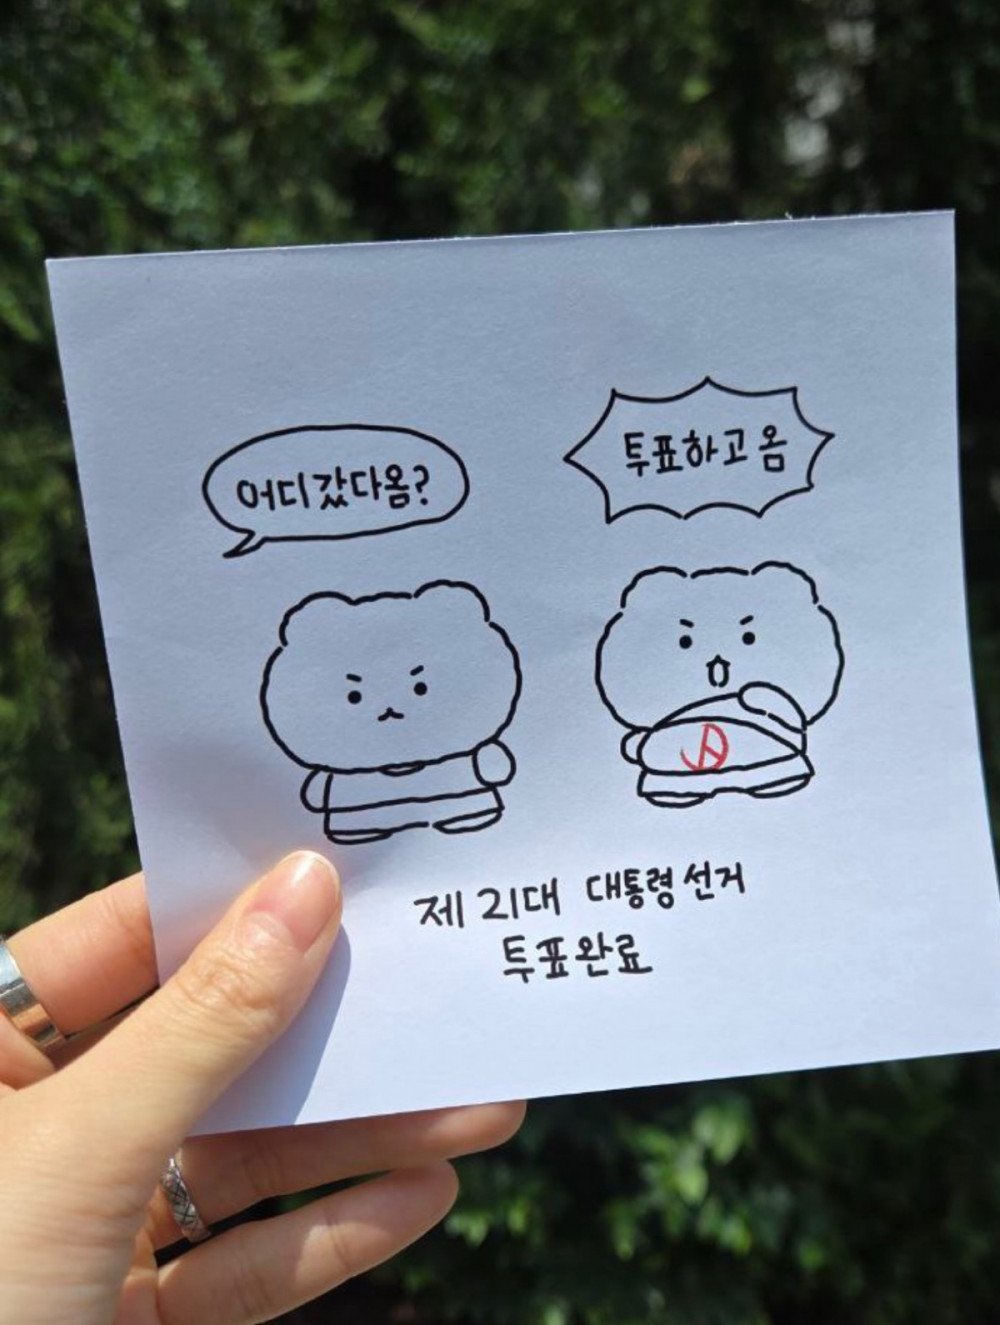 어디갔다옴?
투표하고 옴
제 21대 대통령선거
투표완료